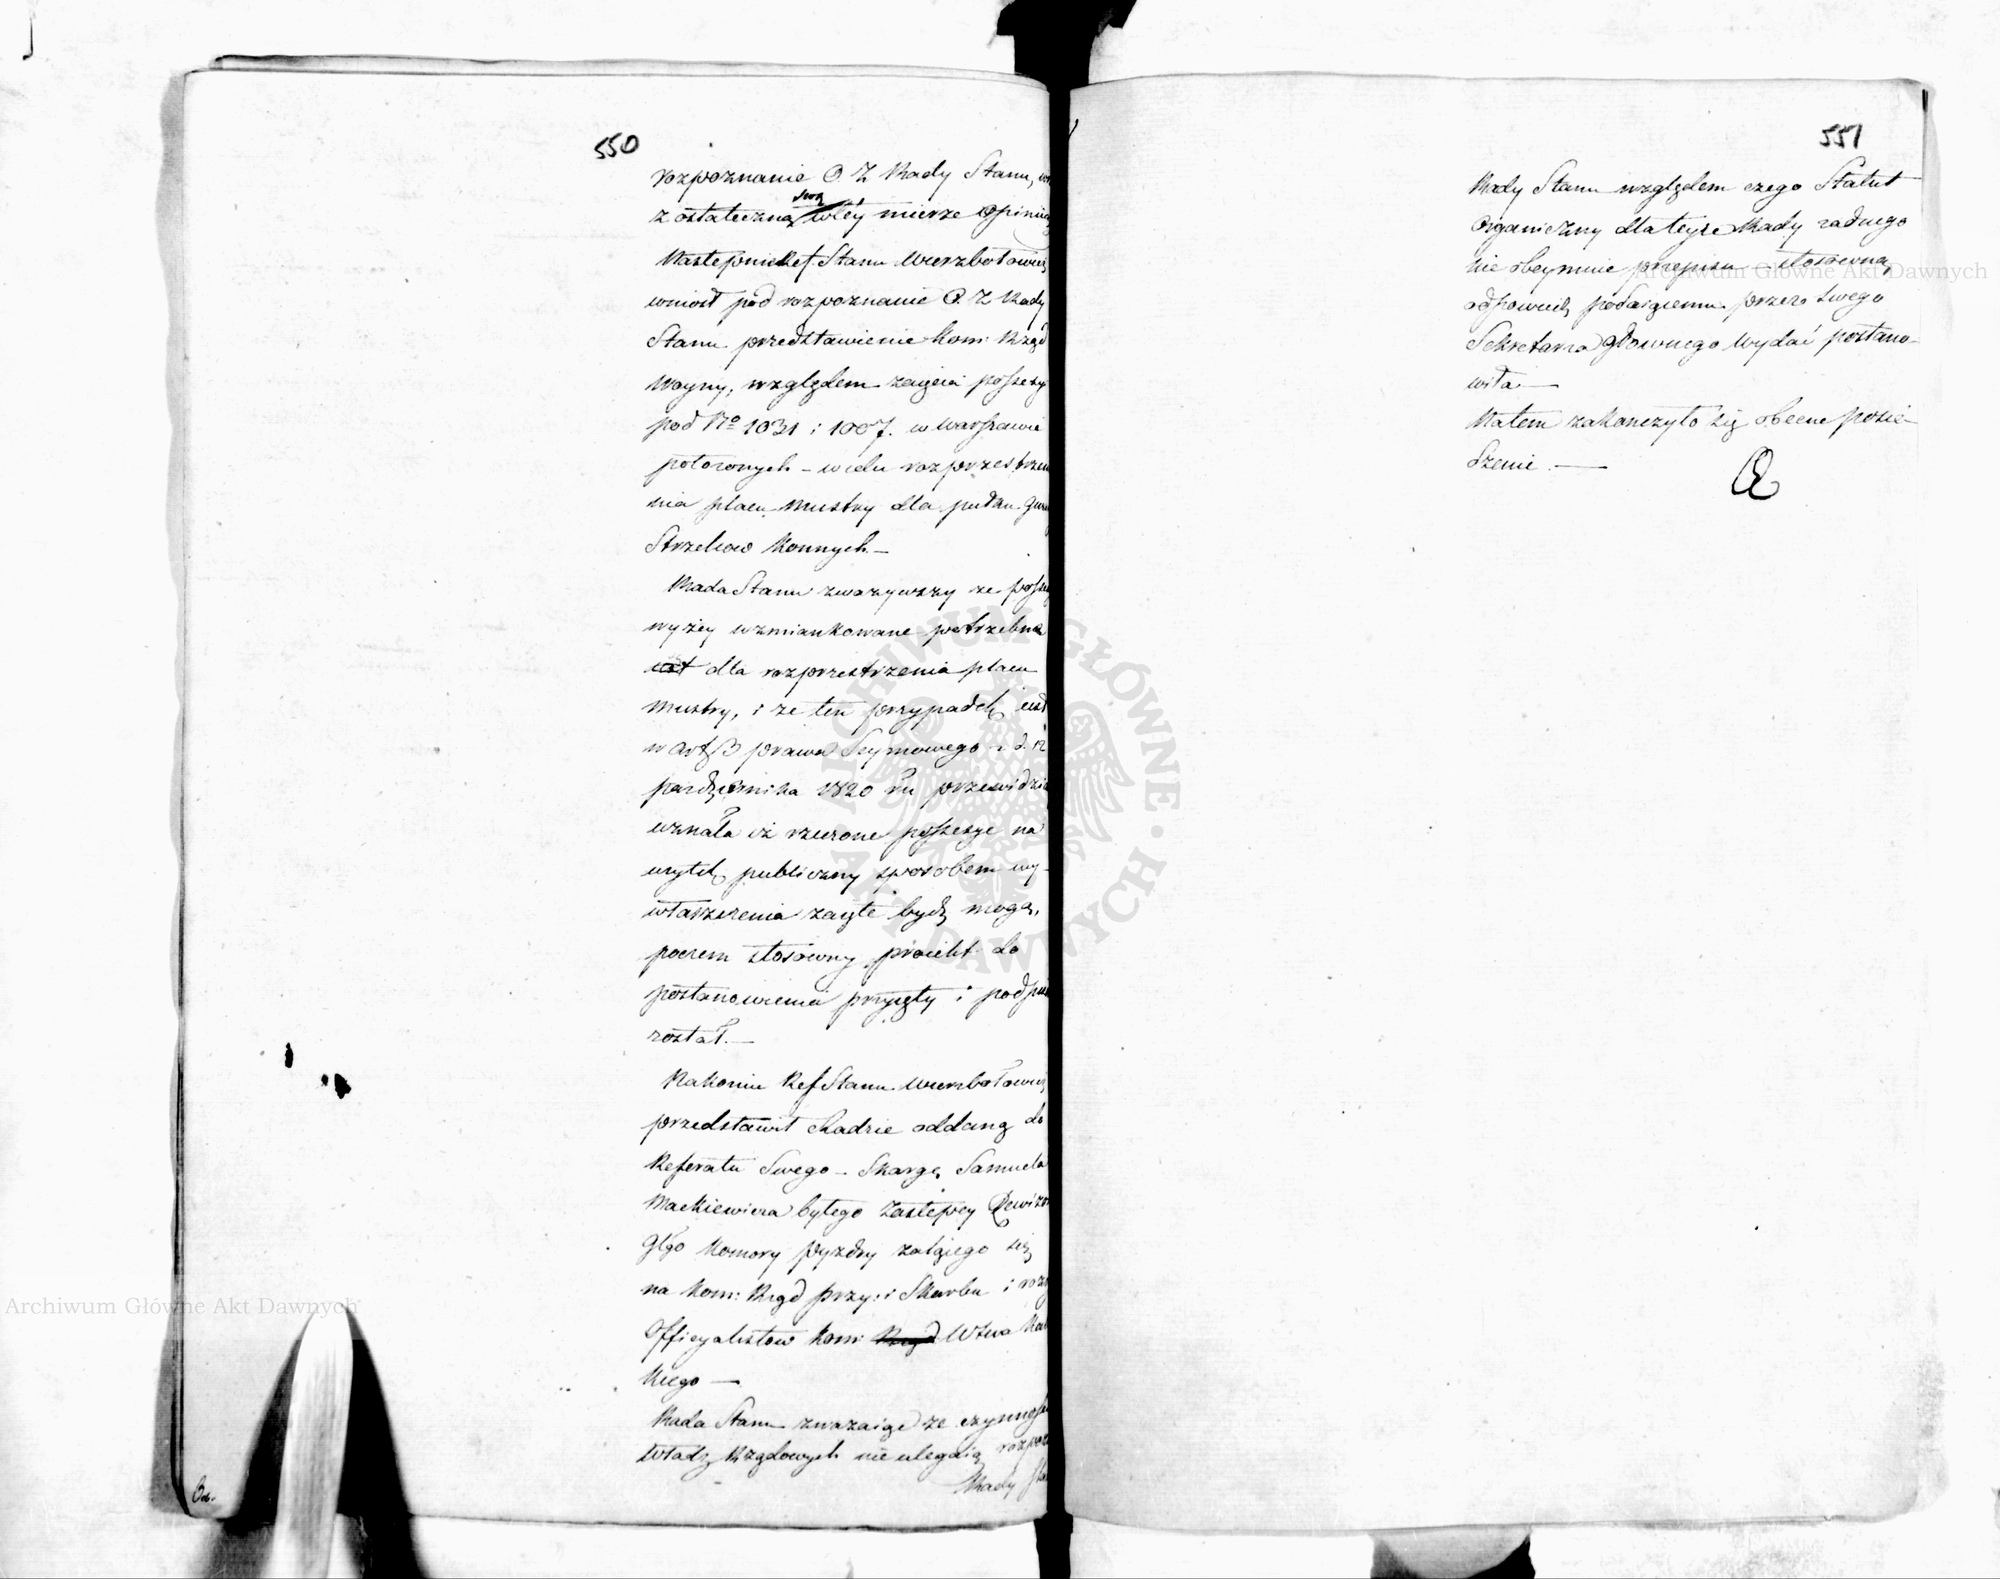 550
rozpoznanie O. Z. Rady Stanu,
z ostateczną swą w téy mierze opinią
Następnie Ref Stanu Wierzbołowicz
wniosł pod rozpoznanie O. Z. Rady
Stanu przedstawienie Kom: Rząd
Woyny, względem zaięcia possesyi
pod No 1031 i 1007. w Warszawie
położonych – w celu rozprzestrzen
nia placu mustry dla pułku Gwar
Strzelcow Konnych. –
Rada Stanu zważywszy że possesye
wyżey wzmiankowane potrzebne
są dla rozprzestrzenia placu
mustry, i że ten przypadek iest
w art. 3 prawa Seymowego z d. 12
października 1820 ru przewidzia
uznała iż rzeczone possesye na
użytek publiczny sposobem wy-
własczenia zaięte bydź mogą,
poczem stosowny proiekt do
postanowienia przyięty i podpis
został. –
Nakoniec Ref Stanu Wierzbołowicz
przedstawił Radzie oddaną do
Referatu Swego – Skargę Samuela
Mackiewicza byłego Zastępcy Rewizora
Głgo Komory Pyzdry żalącego się
na Kom: Rząd przy: i Skarbu i
Officyalistow Kom: Rząd Wdwa Kal
kiego —
Rada Stanu zważaiąc że czynności
Władz Rządowych nie ulegaią rozpoz
Rady Stan
551
Rady Stanu względem czego Statut
Organiczny dla teyże Rady żadnego
nie obeymuie przepisu – stosowną
odpowiedź podaiącemu przez Swego
Sekretarza głównego wydać postano-
wiła —
Na tem zakończyło się obecne posie-
dzenie. —
Archiwum Główne Akt Dawnych
Archiwum Główne Akt Dawnych
ARCHIWUM GŁÓWNE AKT DAWNYCH